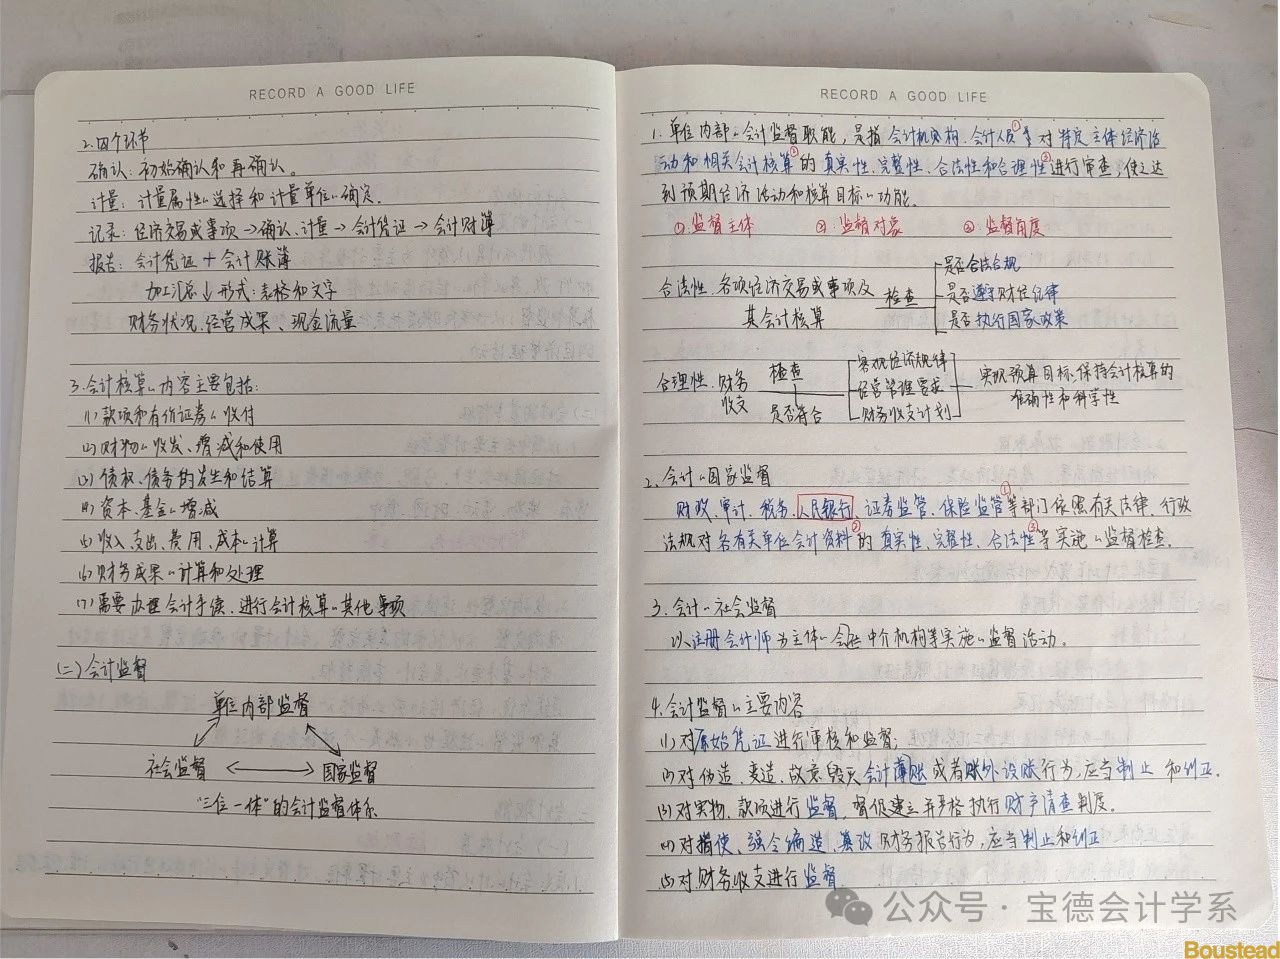 RECORD A GOOD LIFE
2.四个环节
确认：初始确认和再确认。
计量：计量属性的选择和计量单位的确定。
记录：经济交易或事项→确认、计量→会计凭证→会计账簿
报告：会计凭证+会计账簿
加工汇总↓形式：表格和文字
财务状况、经营成果、现金流量
3.会计核算的内容主要包括：
(1)款项和有价证券的收付
(2)财物的收发、增减和使用
(3)债权、债务的发生和结算
(4)资本、基金的增减
(5)收入、支出、费用、成本的计算
(6)财务成果的计算和处理
(7)需要办理会计手续、进行会计核算的其他事项
(二)会计监督
单位内部监督
社会监督 ⟷ 国家监督
"三位一体"的会计监督体系
RECORD A GOOD LIFE
1.单位内部的会计监督职能，是指会计机构、会计人员①对特定主体经济活
动和相关会计核算②的真实性、完整性、合法性和合理性③进行审查，使之达
到预期经济活动和核算目标的功能。
①.监督主体 ②.监督对象 ③.监督角度
合法性：各项经济交易或事项及其会计核算 检查 是否合法合规
是否遵守财经纪律
是否执行国家政策
合理性：财务收支 检查是否符合 客观经济规律
经营管理要求
财务收支计划
实现预算目标、保持会计核算的
准确性和科学性
2.会计的国家监督
财政、审计、税务、人民银行、证券监管、保险监管①等部门依照有关法律、行政
法规对各有关单位会计资料②的真实性、完整性、合法性③等实施的监督检查。
3.会计的社会监督
以注册会计师为主体的中介机构等实施的监督活动。
4.会计监督的主要内容
(1)对原始凭证进行审核和监督；
(2)对伪造、变造、故意毁灭会计薄账或者账外设账行为，应当制止和纠正.
(3)对实物、款项进行监督，督促建立并严格执行财产清查制度.
(4)对指使、强令编造、篡改财务报告行为，应当制止和纠正
(5)对财务收支进行监督
公众号·宝德会计学系
Boustead